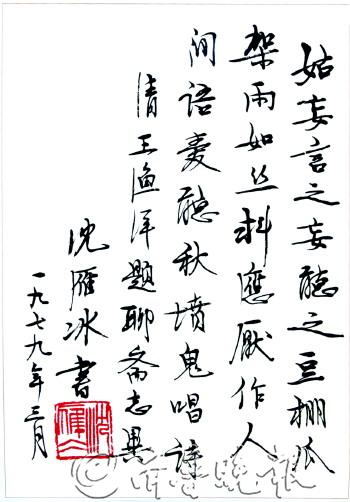 姑妄言之妄聽之豆棚瓜
架雨如丝料應厭作人
间语爱聽秋墳鬼唱詩
清王渔洋题聊斋志異
沈雁冰書
一九七九年三月
沈雁冰
齐鲁晚报